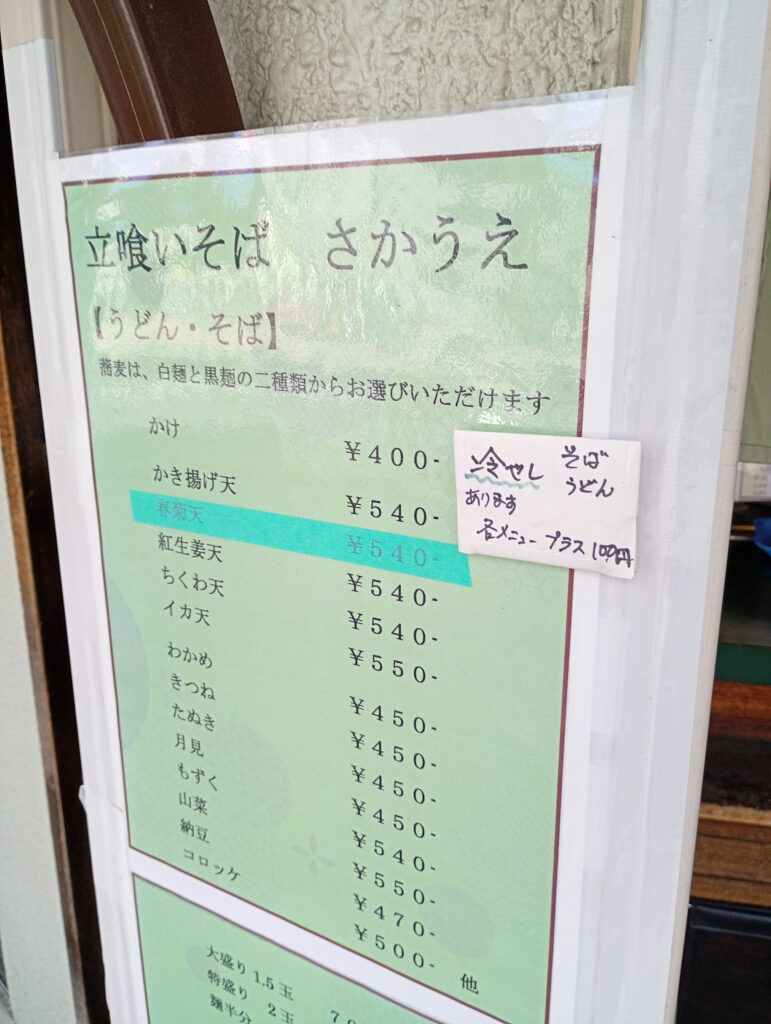 立喰いそば　さかうえ
【うどん・そば】
蕎麦は、白麺と黒麺の二種類からお選びいただけます
かけ ￥400-
かき揚げ天 ￥540-
春菊天 ￥540-
紅生姜天 ￥540-
ちくわ天 ￥540-
イカ天 ￥550-
わかめ ￥450-
きつね ￥450-
たぬき ￥450-
月見 ￥450-
もずく ￥540-
山菜 ￥550-
納豆 ￥470-
コロッケ ￥500- 他
冷やし そば うどん
あります
各メニュー プラス100円
大盛り 1.5玉
特盛り 2玉
麺半分